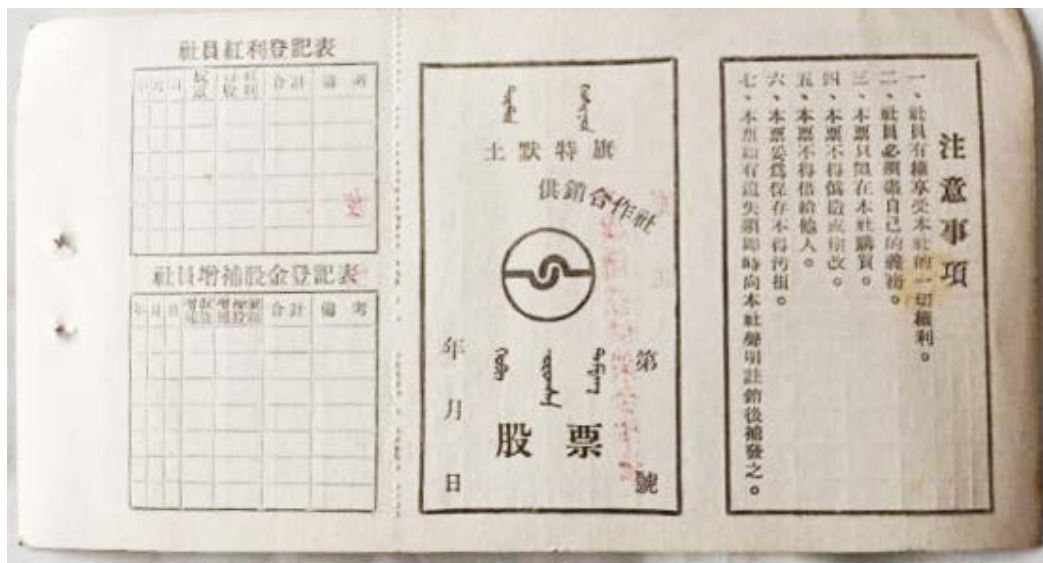 社員紅利登記表
年 月 日 股數 紅利 合計 備考
社員增補股金登記表
年 月 日 合計 備考
土默特旗
供銷合作社
第 號
股票
年 月 日
注意事項
一、社員有權享受本社的一切權利。
二、社員必須盡自己的義務。
三、本票只限在本社購買。
四、本票不得偽造或塗改。
五、本票不得借給他人。
六、本票妥為保存不得污損。
七、本票如有遺失須即時向本社聲明註銷後補發之。